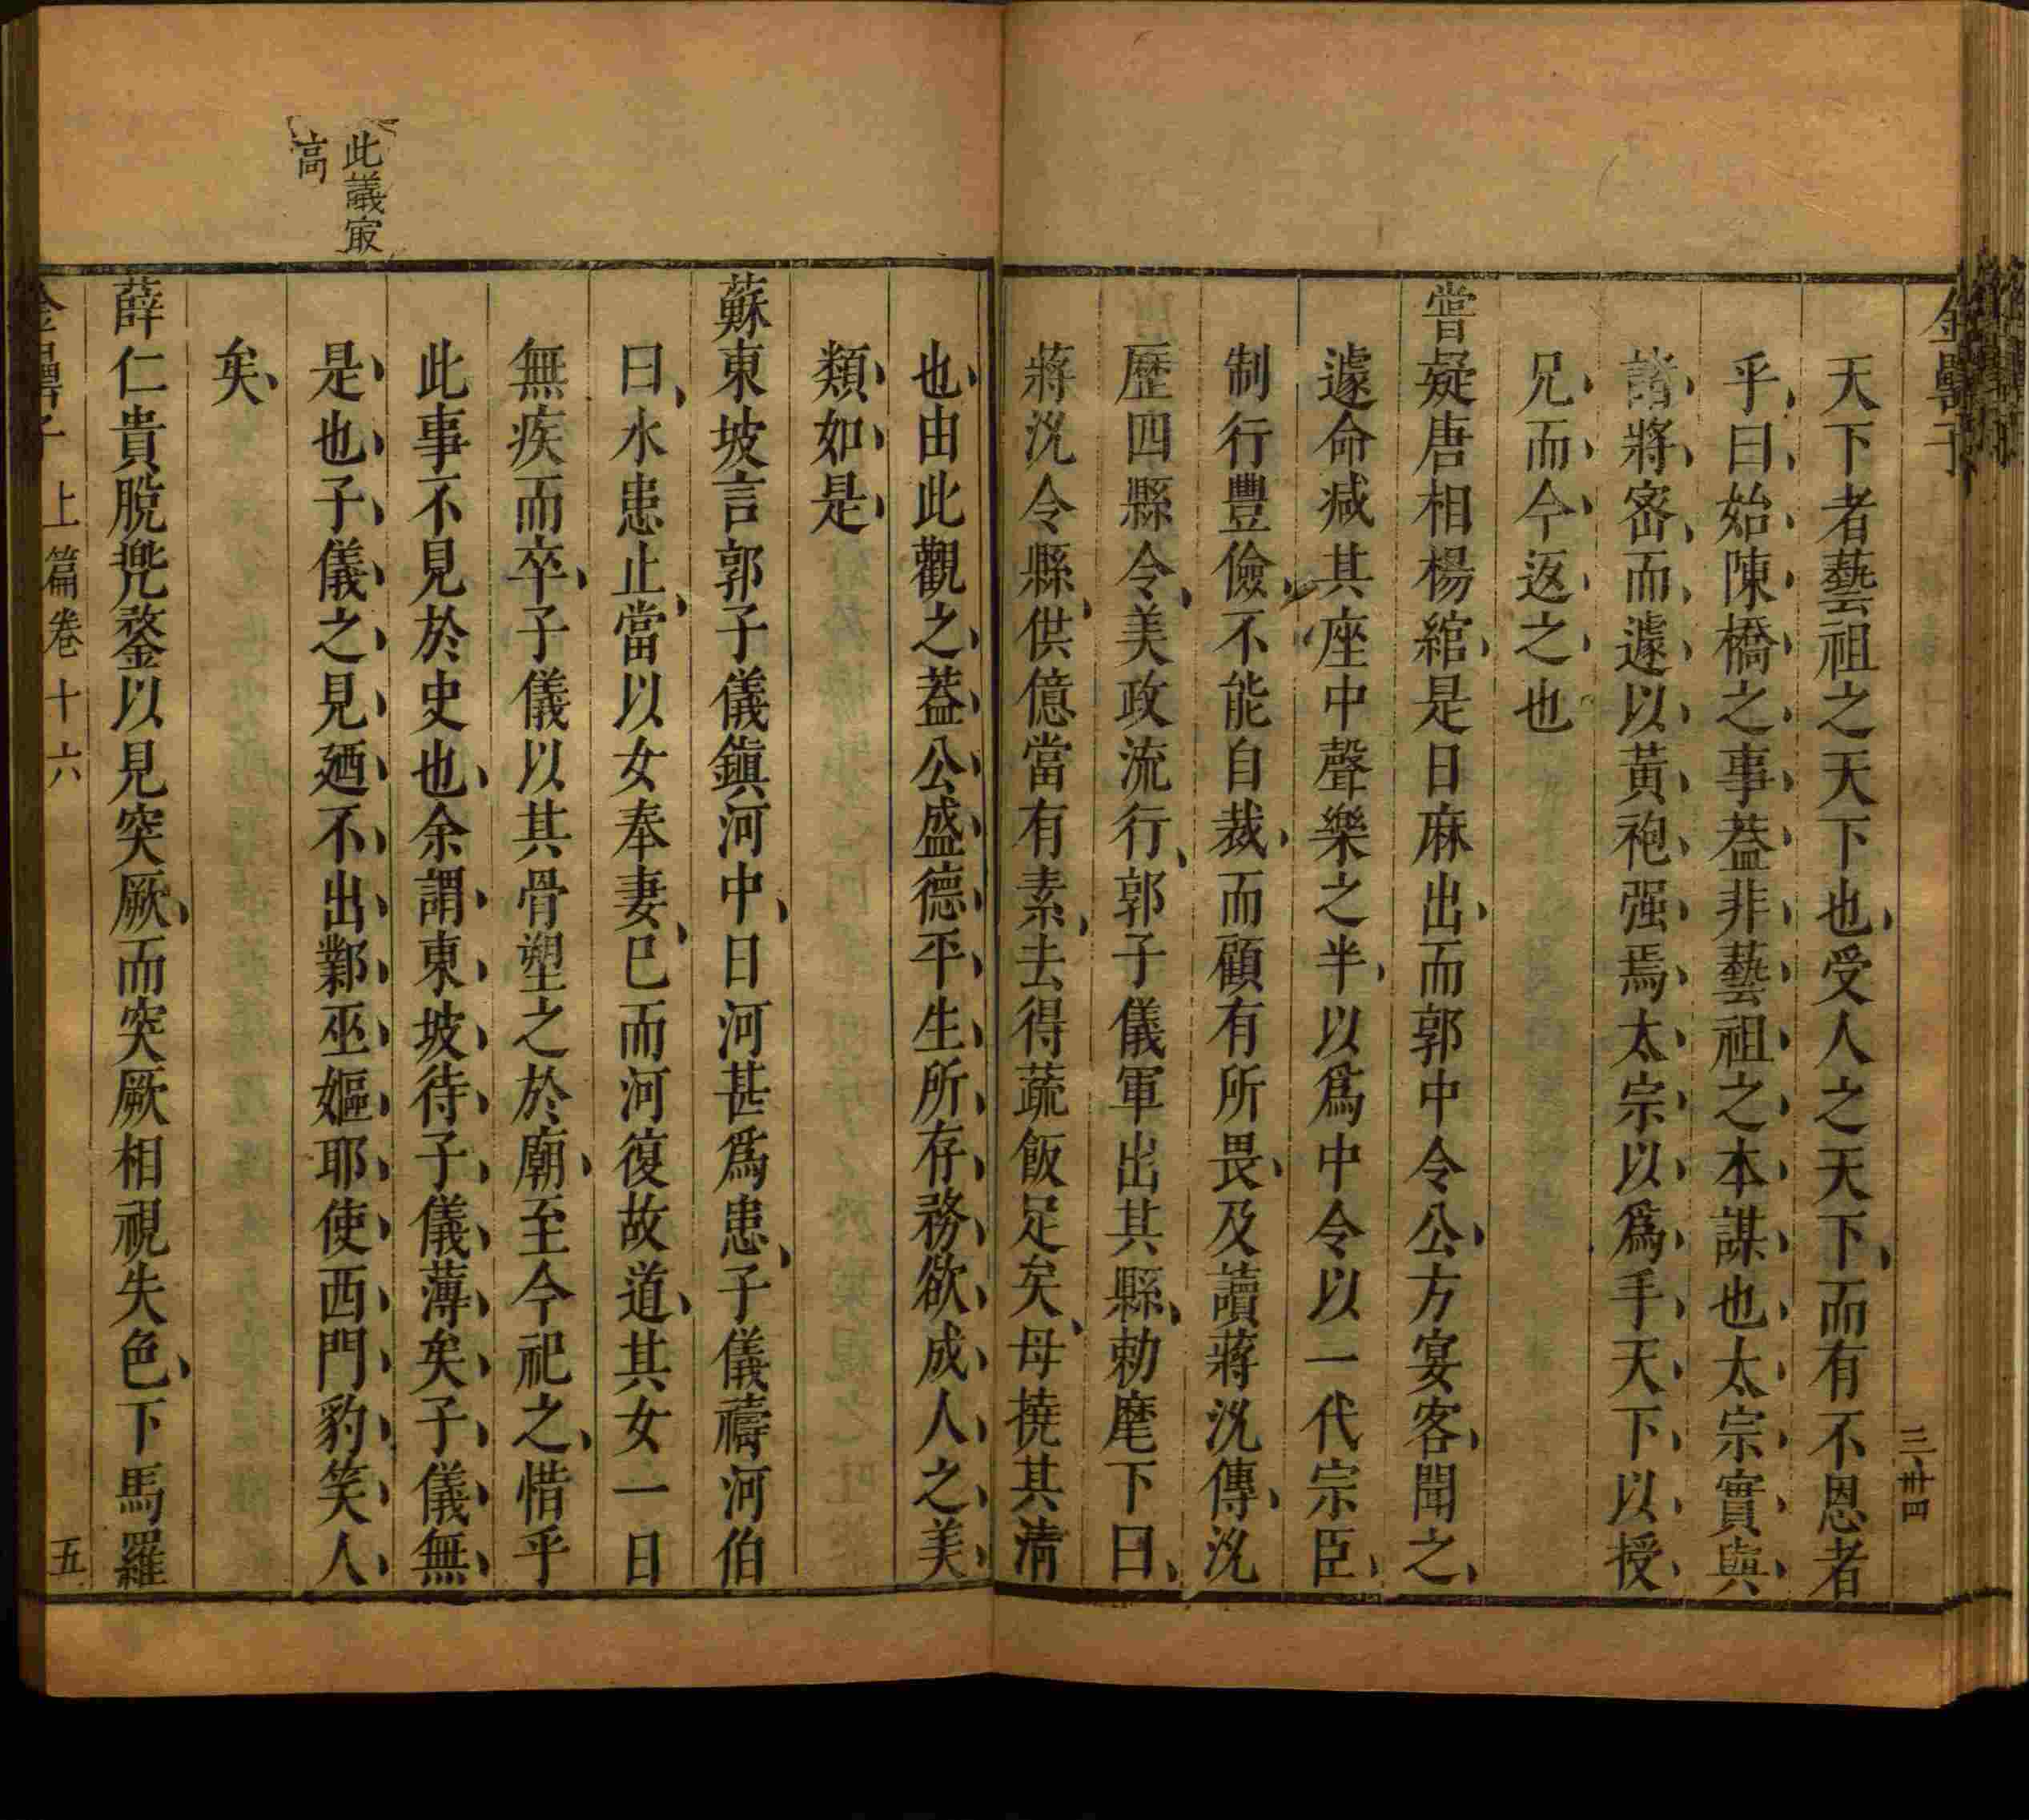 金罍子
三卅四
天下者藝祖之天下也受人之天下而有不恩者
乎曰始陳橋之事葢非藝祖之本謀也太宗實與
諸將宻而遽以黃袍强焉太宗以爲手天下以授
兄而今返之也
嘗疑唐相楊綰是日麻出而郭中令公方宴客聞之
遽命减其座中聲樂之半以爲中令以一代宗臣
制行豐儉不能自裁而顧有所畏及讀蔣沇傳沇
歷四縣令美政流行郭子儀軍出其縣勅麾下曰
蔣沇令縣供億當有素去得蔬飯足矣毋撓其清
也由此觀之葢公盛德平生所存務欲成人之美
類如是
蘇東坡言郭子儀鎭河中日河甚爲患子儀禱河伯
曰水患止當以女奉妻巳而河復故道其女一日
無疾而卒子儀以其骨塑之於廟至今祀之惜乎
此事不見於史也余謂東坡待子儀薄矣子儀無
是也子儀之見廼不出鄴巫嫗耶使西門豹笑人
矣
薛仁貴脫兠鍪以見突厥而突厥相視失色下馬羅
此議㝡
高
上篇卷十六
五